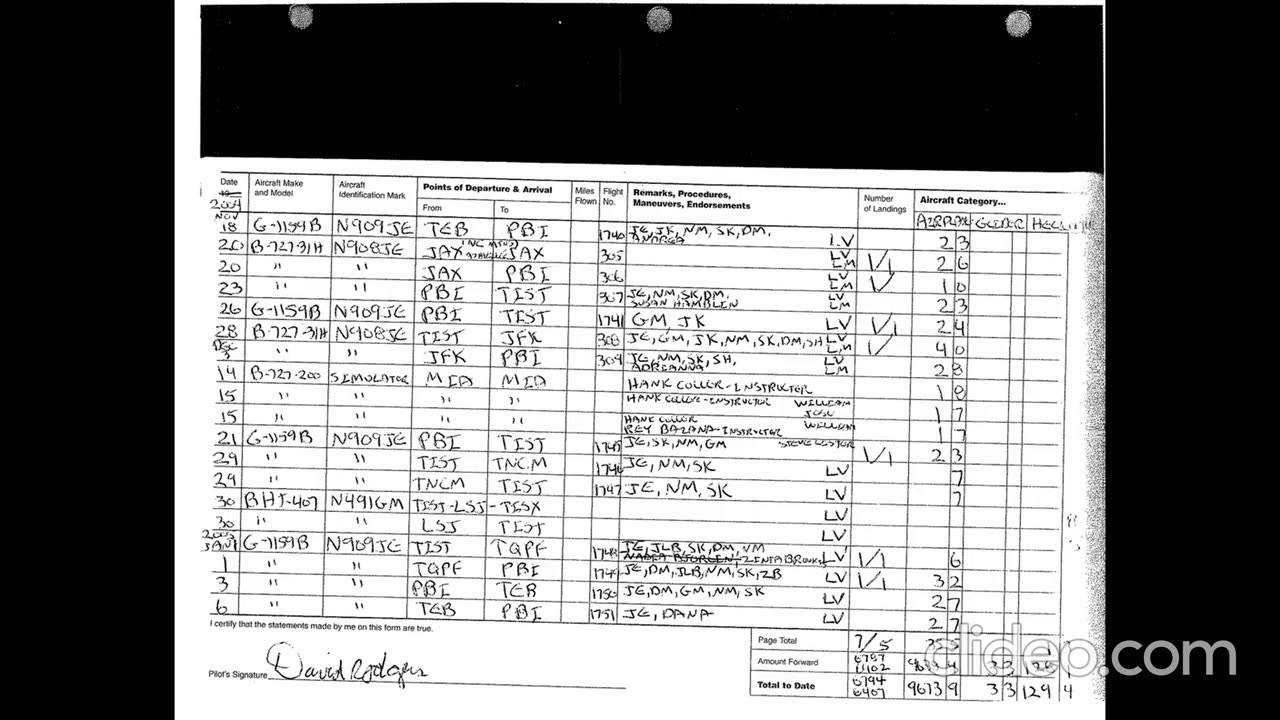 Date
Aircraft Make and Model
Aircraft Identification Mark
Points of Departure & Arrival
From
To
Miles Flown
Flight No.
Remarks, Procedures, Maneuvers, Endorsements
Number of Landings
Aircraft Category...
2004
NOV 18 G-1159B N909JE TEB PBI 1740 JE, JK, NM, SK, DM, ANDREA LV 2 3
20 B-727-31H N908JE JAX JAX 305 LV LM 1/1 2 6
20 " " JAX PBI 306 LV LM 1/ 1 0
23 " " PBI TIST 307 JE, NM, SK, DM, SUSAN HAMBLEN LV LM 2 3
26 G-1159B N909JE PBI TIST 1741 GM, JK LV 1/1 2 4
28 B-727-31H N908JE TIST JFK 308 JE, GM, JK, NM, SK, DM, SH LV LM 1/ 4 0
DEC 3 " " JFK PBI 309 JE, NM, SK, SH, ADRIANNA LV LM 2 8
14 B-727-200 SIMULATOR MIA MIA HANK COLLER-INSTRUCTOR 1 8
15 " " " " HANK COLLER-INSTRUCTOR WILLIAM 1 7
15 " " " " HANK COLLER -INSTRUCTOR WILLIAM 1 7
21 G-1159B N909JE PBI TIST JE, SK, NM, GM 1/1 2 3
29 " " TIST TNCM 1746 JE, NM, SK LV 7
29 " " TNCM TIST 1747 JE, NM, SK LV 7
30 BHT-407 N491GM TIST-LSJ-TISX LV
30 " " LSJ TIST LV
2005
JAN 1 G-1159B N909JE TIST TQPF 1748 JE, JLB, SK, DM, NM LV 1/1 6
1 " " TQPF PBI 1749 JE, DM, JLB, NM, SK, ZB LV 1/1 3 2
3 " " PBI TEB 1750 JE, DM, GM, NM, SK LV 2 7
6 " " TEB PBI 1751 JE, DANA LV 2 7
I certify that the statements made by me on this form are true.
Pilot's Signature David Rodgers
Page Total 7/5
Amount Forward
Total to Date 6794 6407 9673 9 3 3 129 4
clideo.com